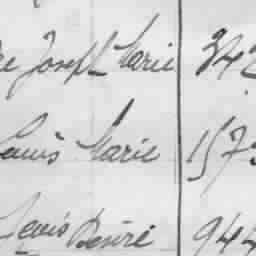 Joseph Marie 342
Louis Marie 1573
Louis Désiré 944